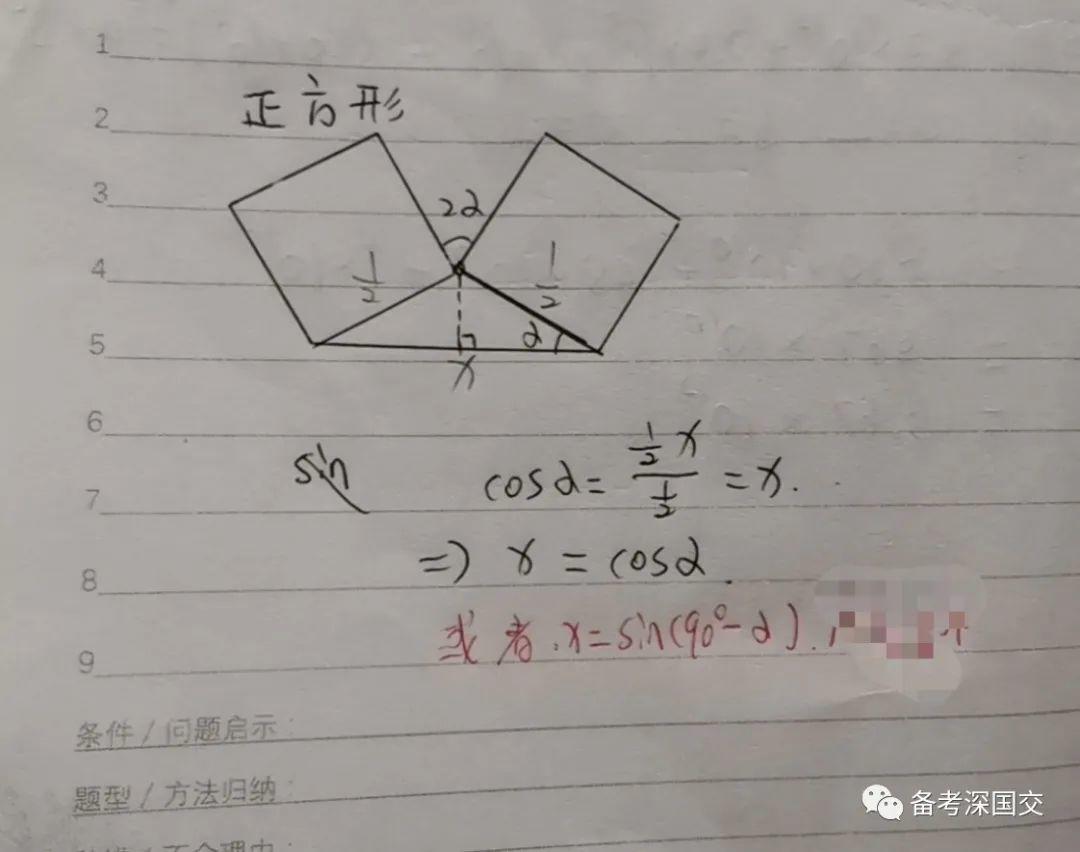 1
2
正方形
3
2α
4
1/2
1/2
α
5
x
6
sin
cosα = (1/2 x)/(1/2) = x.
7
=> x = cosα.
8
或者. x = sin(90° - α).
9
条件 / 问题启示:
题型 / 方法归纳:
备考深国交